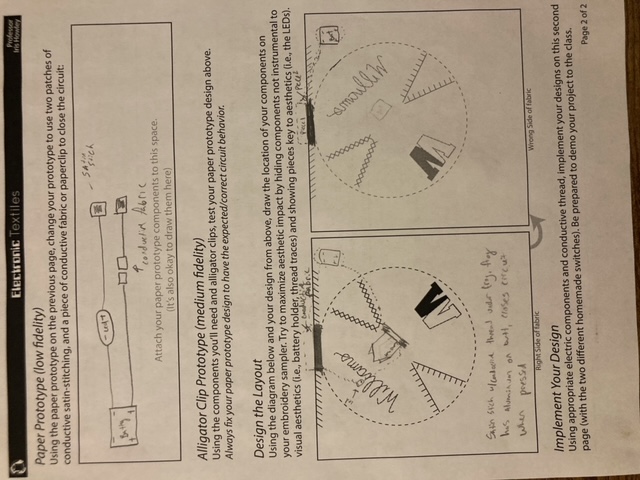 Electronic Textiles
Professor
Iris Howley
Paper Prototype (low fidelity)
Using the paper prototype on the previous page, change your prototype to use two patches of
conductive satin-stitching, and a piece of conductive fabric or paperclip to close the circuit:
satin
stich
conductive fabric
Attach your paper prototype components to this space.
(It's also okay to draw them here)
Alligator Clip Prototype (medium fidelity)
Using the components you'll need and alligator clips, test your paper prototype design above.
Always fix your paper prototype design to have the expected/correct circuit behavior.
Design the Layout
Using the diagram below and your design from above, draw the location of your components on
your embroidery sampler. Try to maximize aesthetic impact by hiding components not instrumental to
visual aesthetics (i.e., battery holder, thread traces) and showing pieces key to aesthetics (i.e., the LEDs).
conductive
fabric
Piece1
Piece2
Williams
Williams
W
W
Satin stich w/conductive thread under frog, frog
has aluminum on butt, closes circuit
when pressed
Right Side of fabric
Wrong Side of fabric
Implement Your Design
Using appropriate electric components and conductive thread, implement your designs on this second
page (with the two different homemade switches). Be prepared to demo your project to the class.
Page 2 of 2